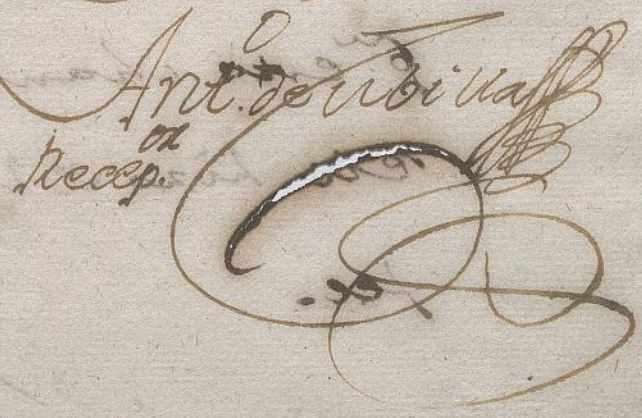 Ant.º de Ubilla
Recep.or